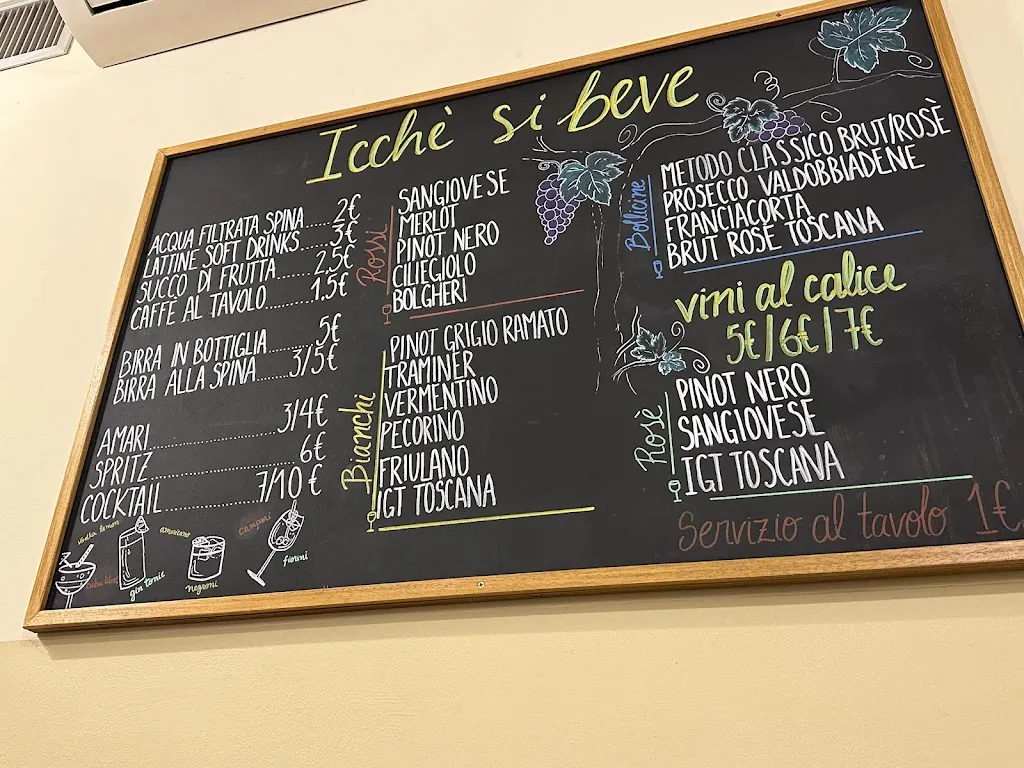 Icchè si beve
ACQUA FILTRATA SPINA.....2€
LATTINE SOFT DRINKS.....3€
SUCCO DI FRUTTA.......2,5€
CAFFÈ AL TAVOLO.........1.5€
BIRRA IN BOTTIGLIA.......5€
BIRRA ALLA SPINA........3/5€
AMARI....................3/4€
SPRITZ....................6€
COCKTAIL................7/10€
vodka lemon
gin tonic
americano
negroni
campari
Rossi
SANGIOVESE
MERLOT
PINOT NERO
CILIEGIOLO
BOLGHERI
Bianchi
PINOT GRIGIO RAMATO
TRAMINER
VERMENTINO
PECORINO
FRIULANO
IGT TOSCANA
Bollicine
METODO CLASSICO BRUT/ROSÈ
PROSECCO VALDOBBIADENE
FRANCIACORTA
BRUT ROSÈ TOSCANA
vini al calice
5€/6€/7€
Rosè
PINOT NERO
SANGIOVESE
IGT TOSCANA
Servizio al tavolo 1€